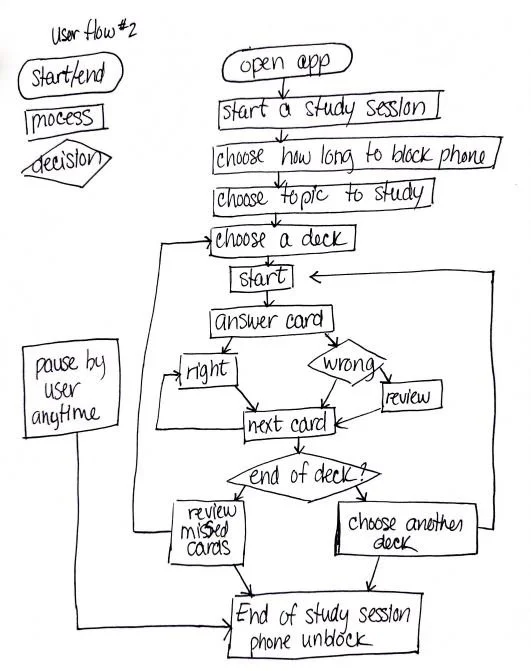 user flow #2
start/end
process
decision
open app
start a study session
choose how long to block phone
choose topic to study
choose a deck
start
answer card
right
wrong
review
next card
end of deck?
review
missed
cards
choose another
deck
pause by
user
anytime
End of study session
phone unblock